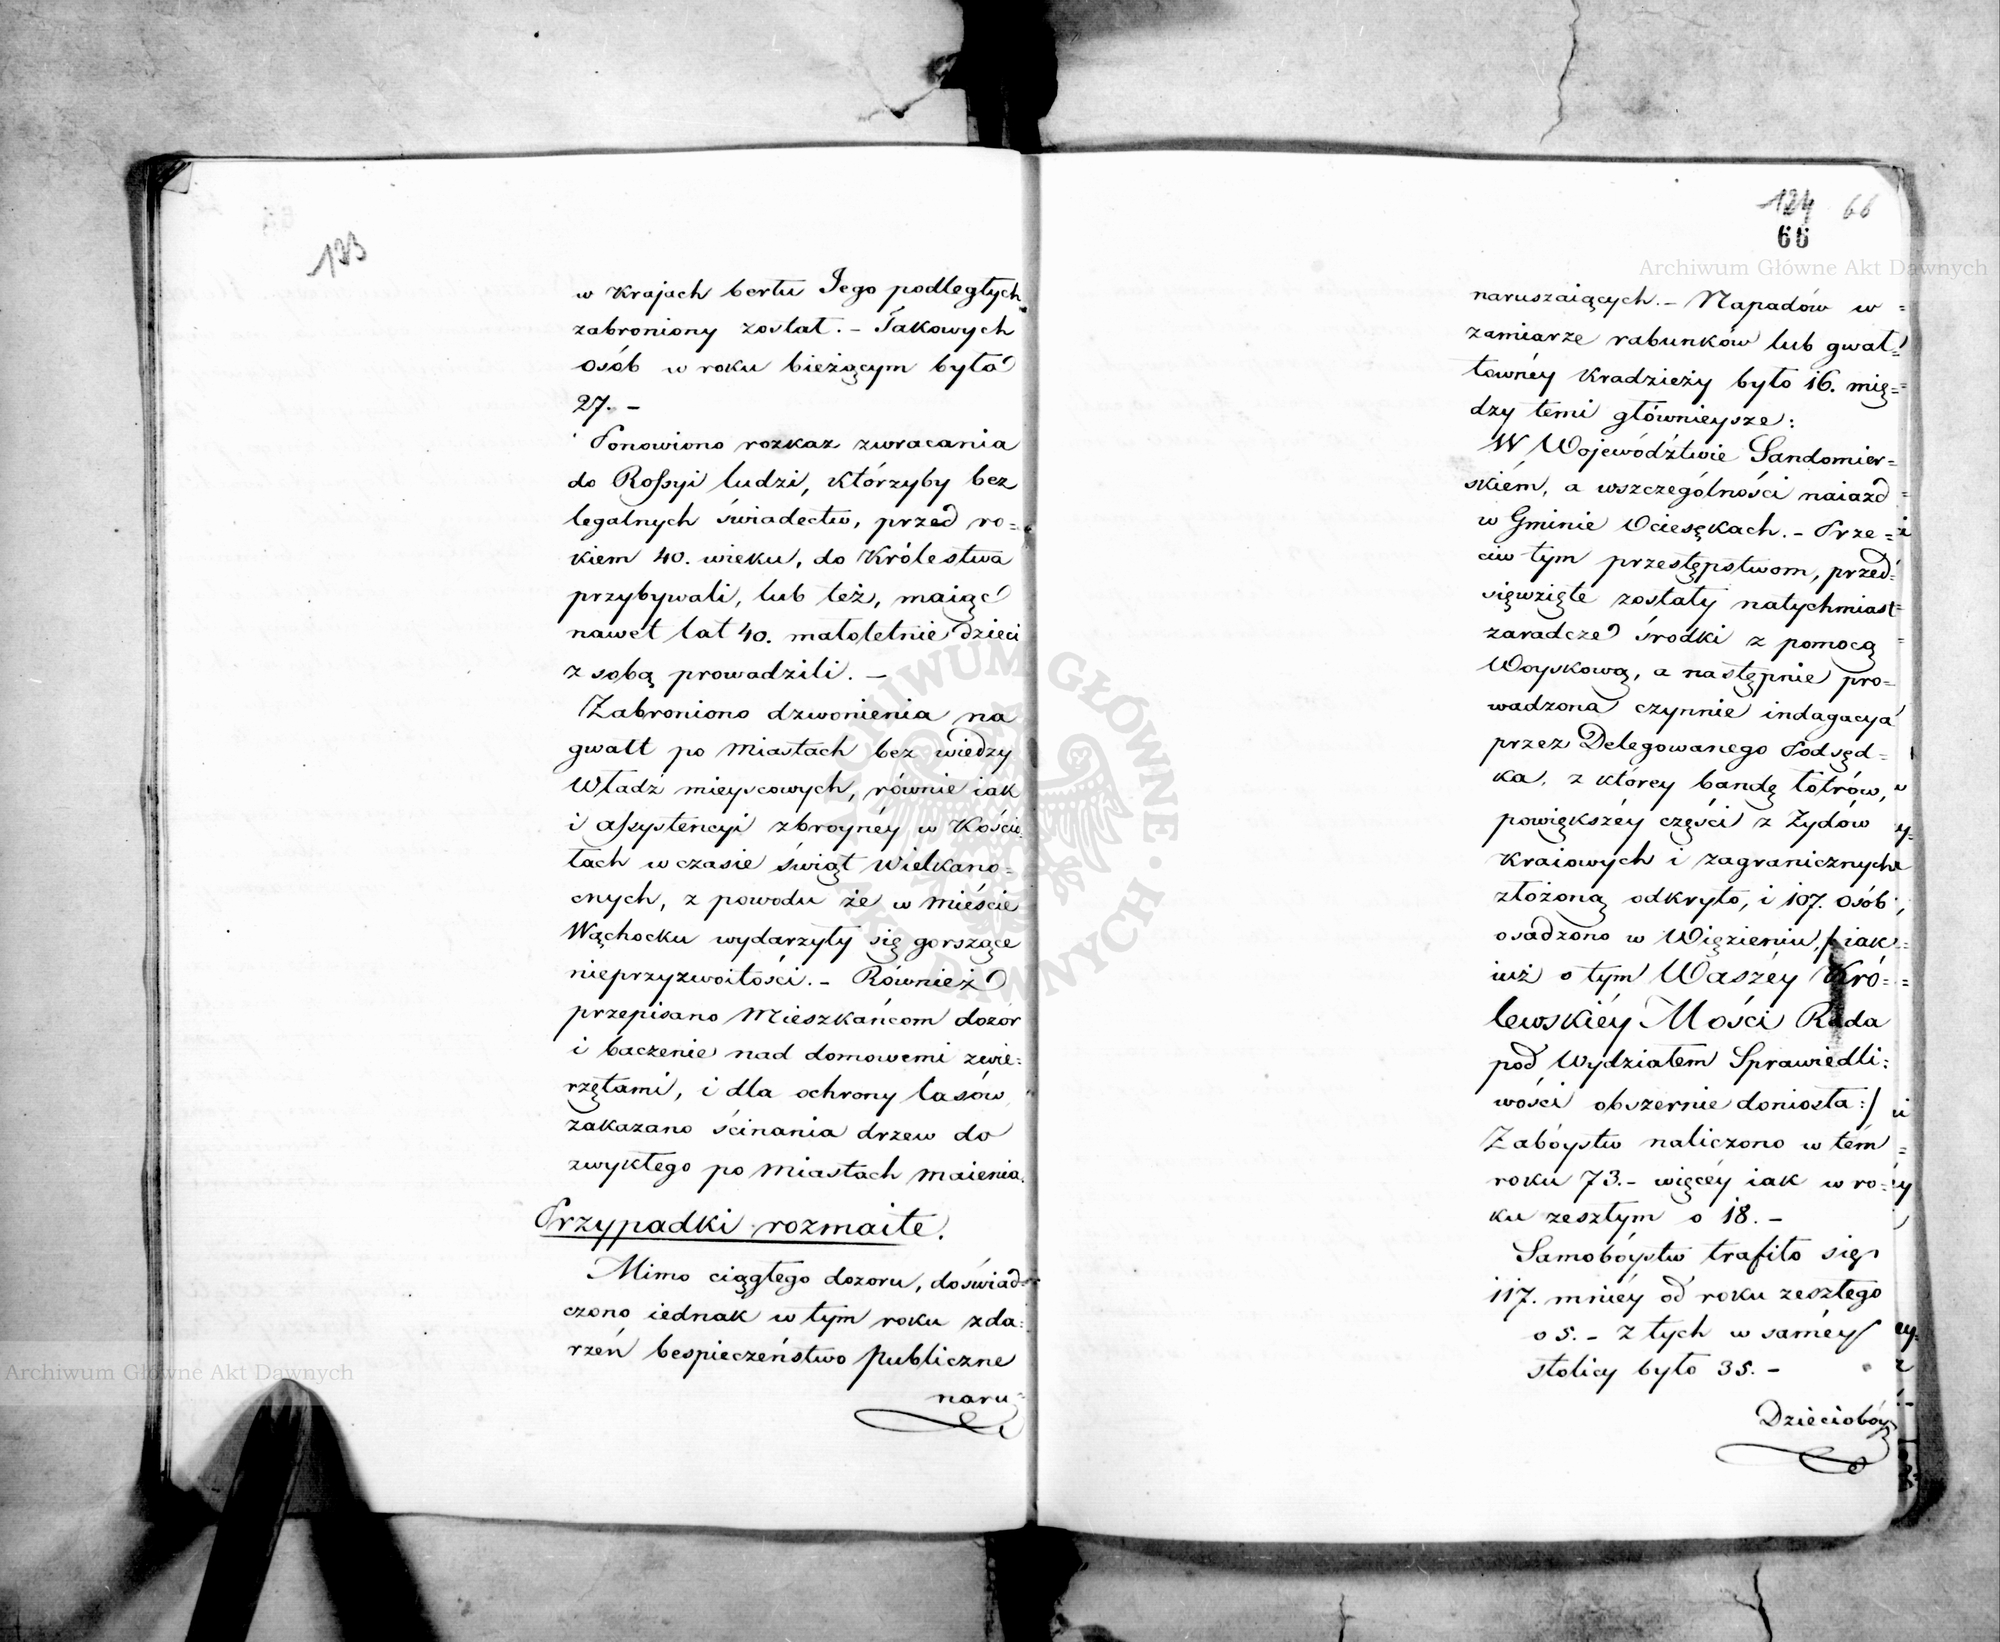 123
w Krajach bertu Jego podległych
zabroniony został. – Takowych
osób w roku bieżącym było
27. –
Ponowiono rozkaz zwracania
do Rossyi ludzi, którzyby bez
legalnych świadectw, przed ro=
kiem 40. wieku, do Królestwa
przybywali, lub też, maiąc
nawet lat 40. małoletnie dzieci
z sobą prowadzili. –
Zabroniono dzwonienia na
gwałt po Miastach bez wiedzy
Władz mieyscowych, równie iak
i assystencyi zbroynéy w Kościo
łach w czasie świąt Wielkano=
cnych, z powodu że w Mieście
Wąchocku wydarzyły się gorszące
nieprzyzwoitości. – Również
przepisano Mieszkańcom dozór
i baczenie nad domowemi zwie=
rzętami, i dla ochrony lasów
zakazano ścinania drzew do
zwykłego po Miastach maienia.
Przypadki rozmaite.
Mimo ciągłego dozoru, doświad=
czono iednak w tym roku zda=
rzeń bespieczeństwo publiczne
naru=
124 66
66
naruszaiących. – Napadów w
zamiarze rabunków lub gwał=
towney Kradzieży było 16. mię=
dzy temi głównieysze:
W Województwie Sandomier=
skiém, a wszczególności naiazd
w Gminie Ociesękach. – Prze=
ciw tym przestępstwom, przed=
sięwzięte zostały natychmiast
zaradcze środki z pomocą
Woyskową, a następnie pro=
wadzona czynnie indagacya
przez Delegowanego Podsęd=
ka, z którey bandę łotrów,
powiększéy części z Żydów
Kraiowych i zagranicznych
złożoną odkryto, i 107. osób
osadzono w Więzieniu, /: iak
iuż o tym Waszéy Kró=
lewskiéy Mości Rada
pod Wydziałem Sprawiedli=
wości obszernie doniosła :/
Zabóystw naliczono w tém
roku 73. – więcéy iak w ro=
ku zeszłym o 18. –
Samobóystw trafiło się
117. mniéy od roku zeszłego
o 5. – z tych w saméy
stolicy było 35. –
Dzieciobóy
Archiwum Główne Akt Dawnych
Archiwum Główne Akt Dawnych
ARCHIWUM GŁÓWNE AKT DAWNYCH